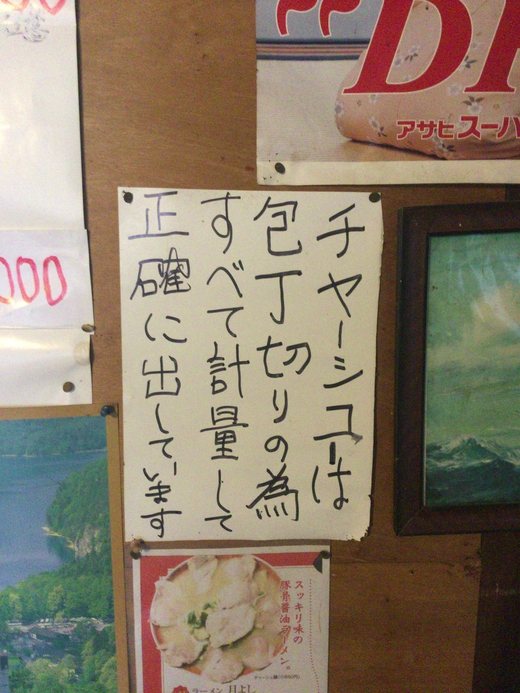 チャーシューは
包丁切りの為
すべて計量して
正確に出しています
000
アサヒスーパ
スッキリ味の
豚骨醤油ラーメン。
ラーメン 月よし